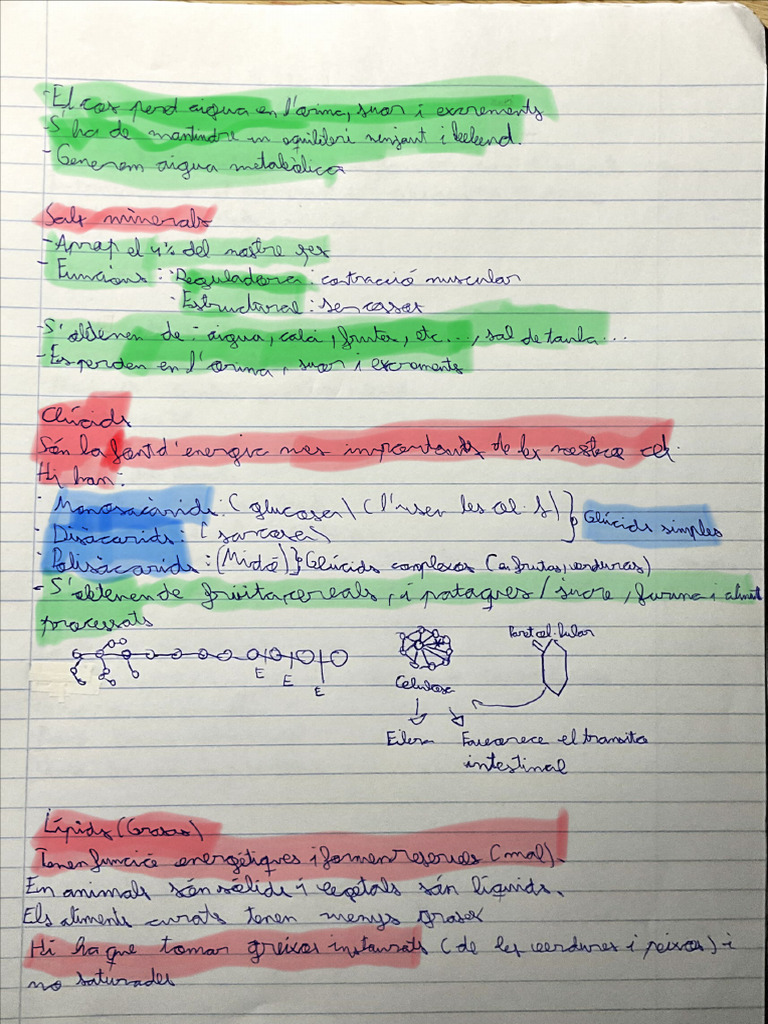 - El cos perd aigua en l'orina, suor i excrements
- S'ha de mantindre un equilibri menjant i bebend.
- Generem aigua metabòlica
Sals minerals
- Aprop el 4% del nostre pes
- Funcions: · Reguladora: contració muscular
· Estructural: ser cosos
- S'obtenen de: aigua, calci, frutes, etc..., sal de taula...
- Es perden en l'orina, suor i excrements
Glúcids
Són la font d'energia mes importants de les nostres cèl.
Hi han:
· Monosacàrids: (glucosa) (l'usen les cèl.s) } Glúcids simples
· Disàcarids: (sarcosa)
· Polisàcarids: (Midó) } Glúcids complexos (en frutas, verduras)
- S'obtenen de fruita, cereals, i pataques / sucre, farina i aliment
processats
E E E
Celulosa
Paret cel·lular
Favorece el transito
intestinal
Lípids (Grasas)
Tenen funció energétiques i formen reserves (mal).
En animals són sólids i vegetals són líquids.
Els aliments curats tenen menys grasa
Hi ha que tomar greixos instaurats (de les verdures i peixos) i
no saturades